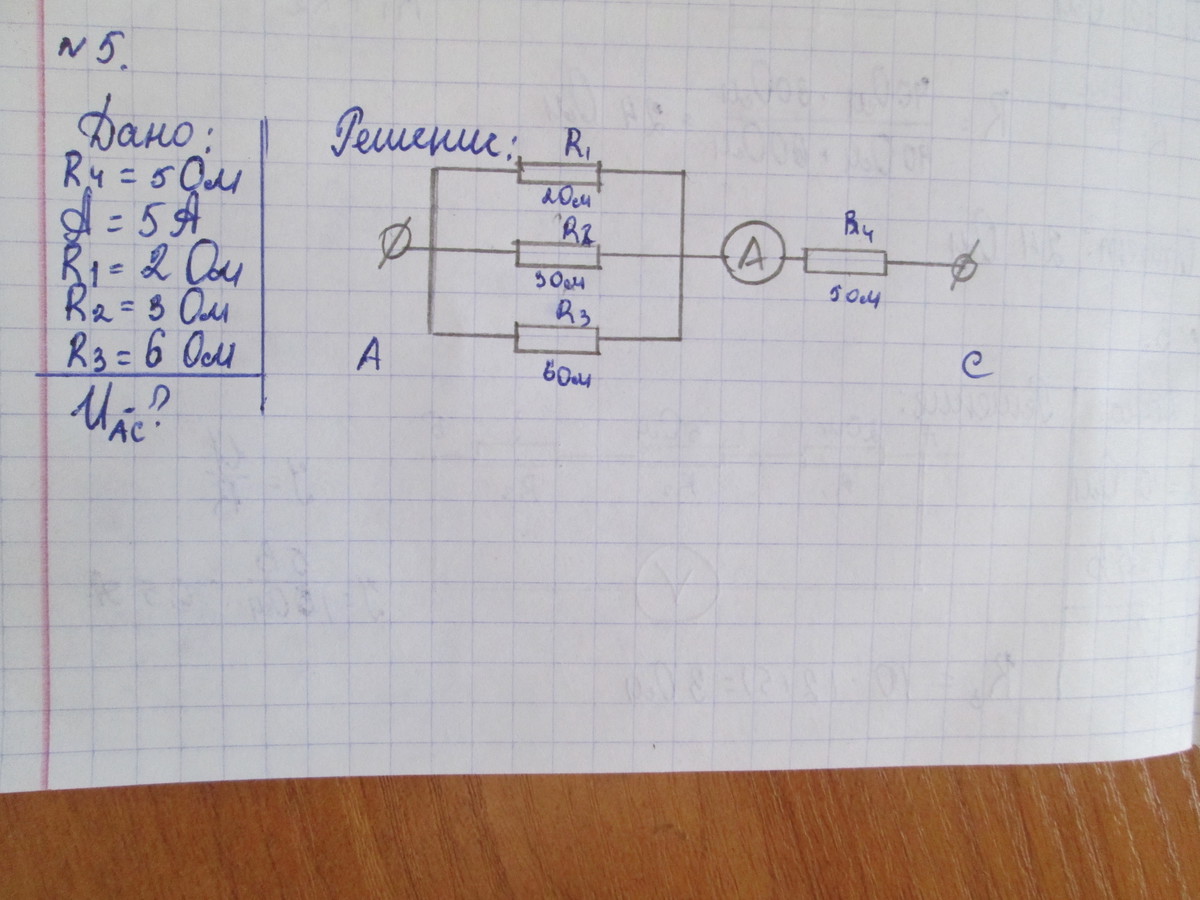 №5.
Дано:
R4 = 5 Ом
A = 5 А
R1 = 2 Ом
R2 = 3 Ом
R3 = 6 Ом
UAC - ?
Решение:
R1
2Ом
R2
3Ом
R3
6Ом
A
R4
5Ом
A
C